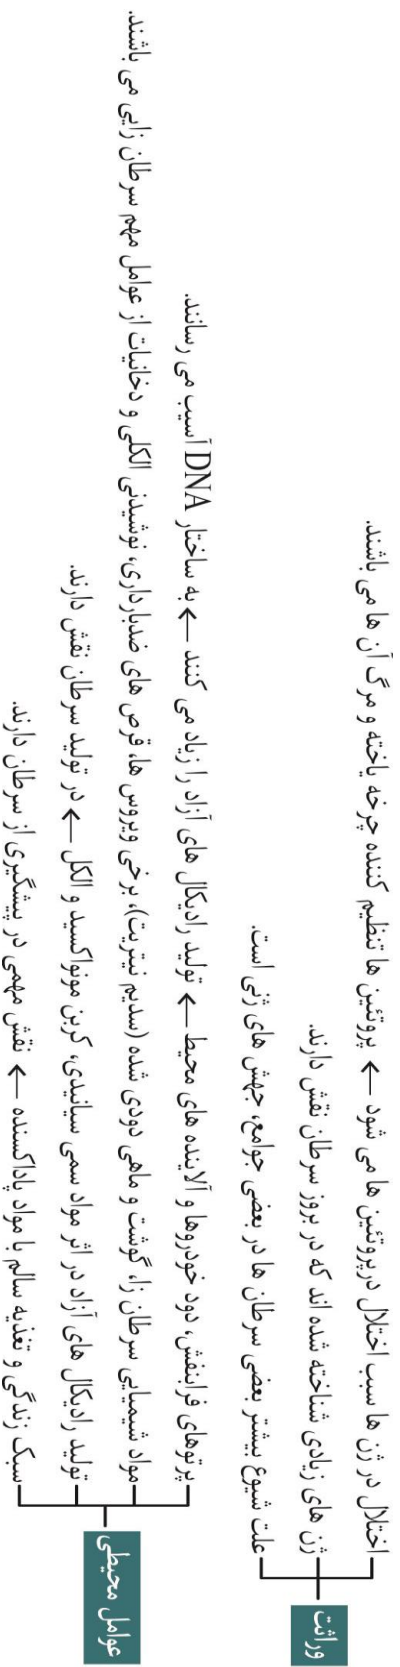 وراثت
اختلال در ژن ها سبب اختلال در پروتئین ها می شود ← پروتئین ها تنظیم کننده چرخه یاخته و مرگ آن ها می باشند.
ژن های زیادی شناخته شده اند که در بروز سرطان نقش دارند.
علت شیوع بیشتر بعضی سرطان ها در بعضی جوامع، جهش های ژنی است.
عوامل محیطی
پرتوهای فرابنفش، دود خودروها و آلاینده های محیط ← تولید رادیکال های آزاد را زیاد می کنند ← به ساختار DNA آسیب می رسانند.
مواد شیمیایی سرطان زا، گوشت و ماهی دودی شده (سدیم نیتریت)، برخی ویروس ها، قرص های ضدبارداری، نوشیدنی الکلی و دخانیات از عوامل مهم سرطان زایی می باشند.
تولید رادیکال های آزاد در اثر مواد سمی سیانیدی، کربن مونواکسید و الکل ← در تولید سرطان نقش دارند.
سبک زندگی و تغذیه سالم با مواد پاداکسنده ← نقش مهمی در پیشگیری از سرطان دارند.